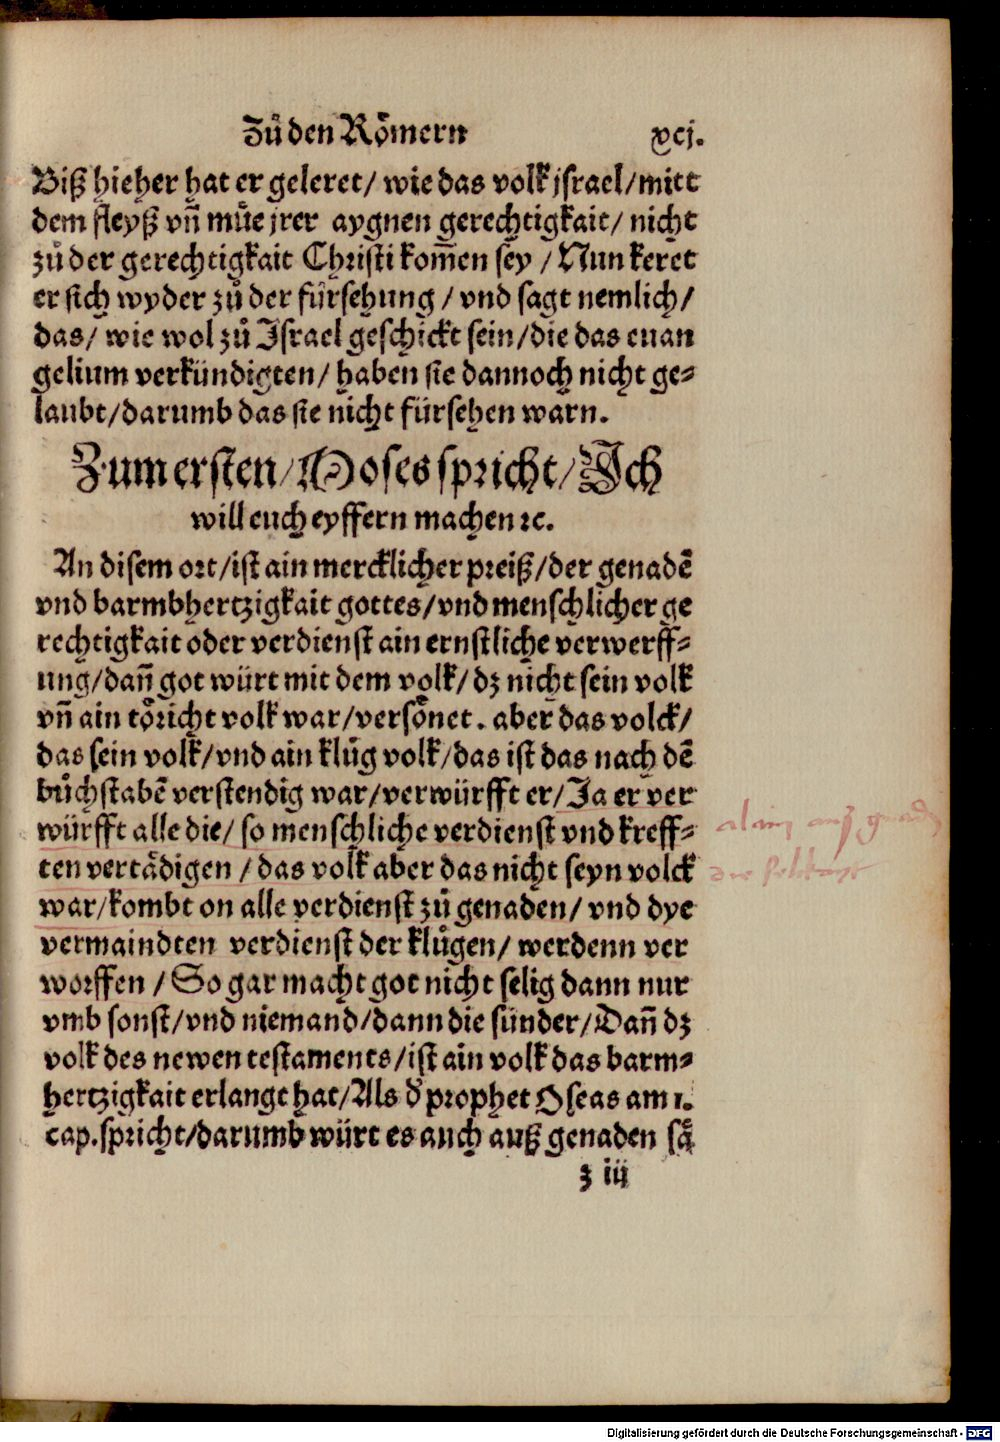 Zů den Rőmern xcj.
Biß hieher hat er geleret/ wie das volk jsrael/mitt
dem fleyß vñ můe jrer aygnen gerechtigkait/ nicht
zů der gerechtigkait Christi kom̃en sey / Nun keret
er sich wyder zů der fürsehung / vnd sagt nemlich/
das/ wie wol zů Israel geschickt sein/die das euan
gelium verkündigten/ haben sie dannoch nicht ge⸗
laubt/darumb das sie nicht fürsehen warn.
Zum ersten/Moses spricht/Ich
will euch eyffern machen ꝛc.
An disem ort/ist ain mercklicher preiß/der genadē
vnd barmbhertzigkait gottes/vnd menschlicher ge
rechtigkait oder verdienst ain ernstliche verwerff⸗
ung/dañ got würt mit dem volk/dz nicht sein volk
vñ ain tőricht volk war/versőnet. aber das volck/
das sein volk/vnd ain klůg volk/das ist das nach dē
bůchstabē verstendig war/verwürfft er/Ja er ver
würfft alle die/ so menschliche verdienst vnd kreff⸗
ten vertådigen / das volk aber das nicht seyn volck
war/kombt on alle verdienst zů genaden/ vnd dye
vermaindten verdienst der klůgen/ werdenn ver
worffen / So gar macht got nicht selig dann nur
vmb sonst/vnd niemand/dann die sünder/Dañ dz
volk des newen testaments/ist ain volk das barm⸗
hertzigkait erlangt hat/Als d̕ prophet Oseas am 1.
cap.spricht/darumb würt es auch auß genaden så
z iij
alain auß gnaden
die
Digitalisierung gefördert durch die Deutsche Forschungsgemeinschaft - DFG